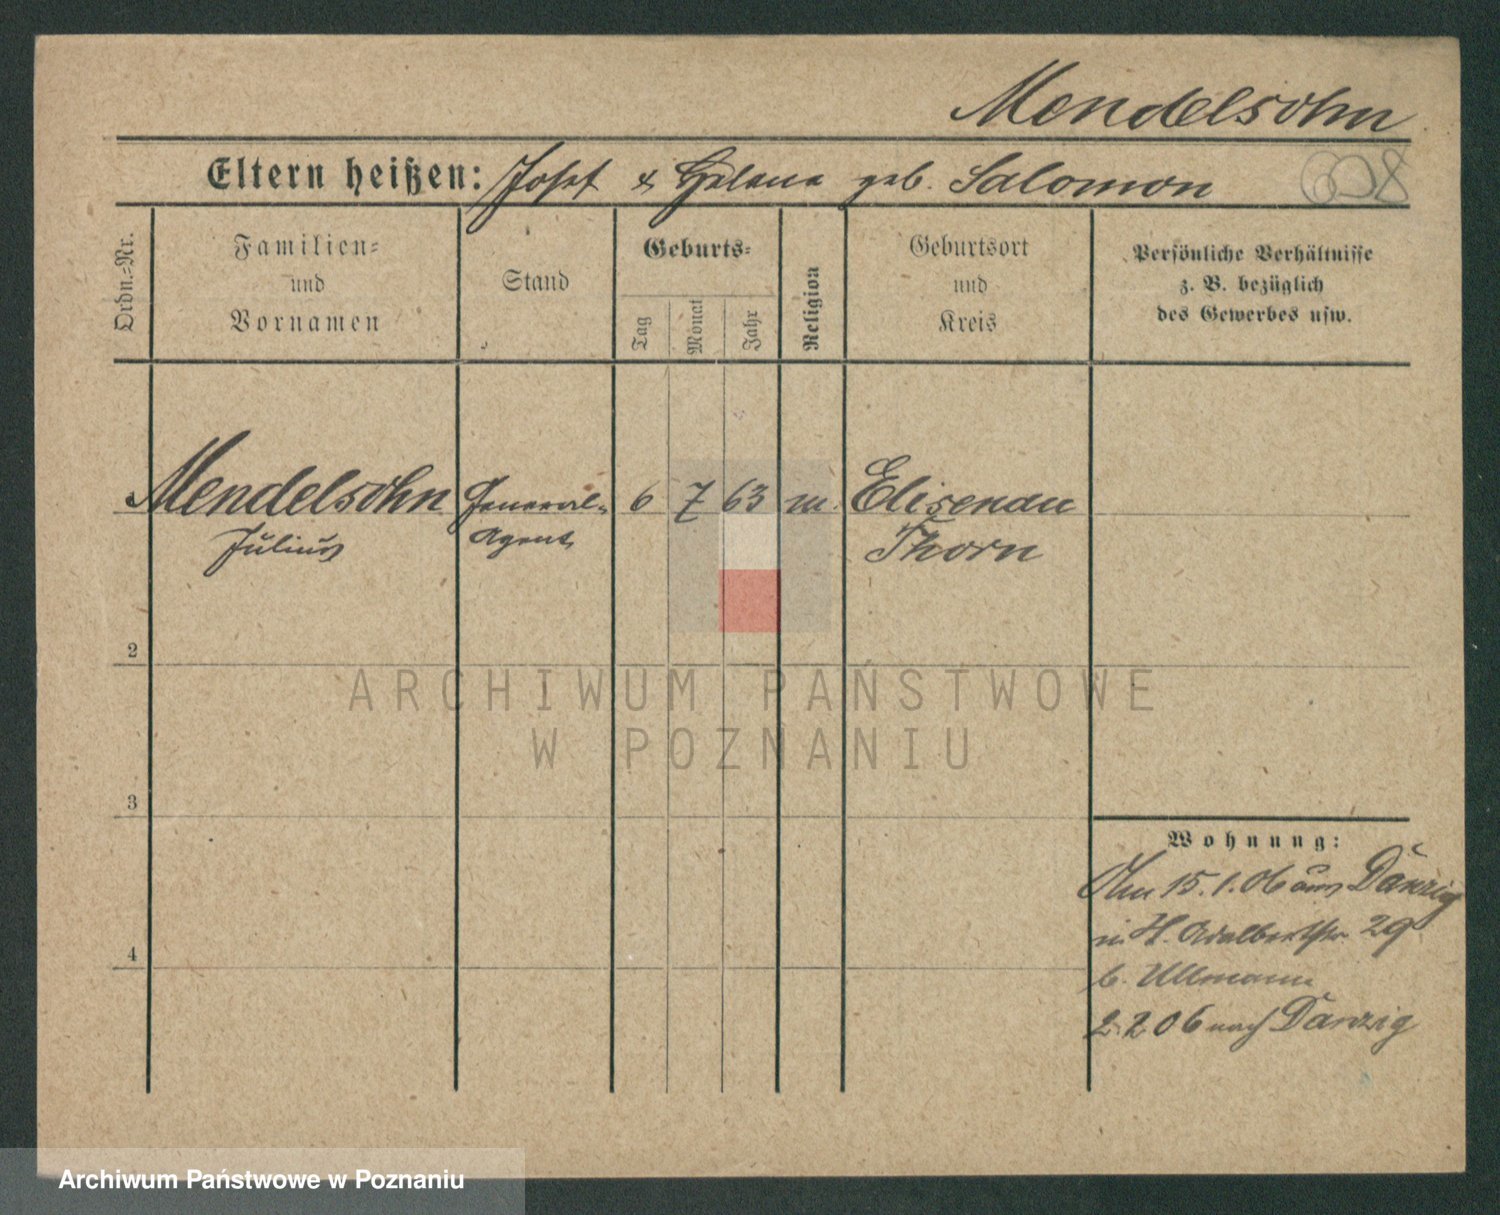 Mendelsohn
Eltern heißen: Josef & Helene geb. Salomon
Ordn.-Nr.
Familien-
und
Vornamen
Stand
Geburts-
Tag
Monat
Jahr
Religion
Geburtsort
und
Kreis
Persönliche Verhältnisse
z. B. bezüglich
des Gewerbes usw.
Mendelsohn General- 6 7 63 m. Elisenau
Julius Agent Thorn
2
ARCHIWUM PAŃSTWOWE
W POZNANIU
3
Wohnung:
Am 15.1.06 aus Danzig
in H. Adalbertstr 29
4
b. Ullmann
2.2 06 nach Danzig
Archiwum Państwowe w Poznaniu